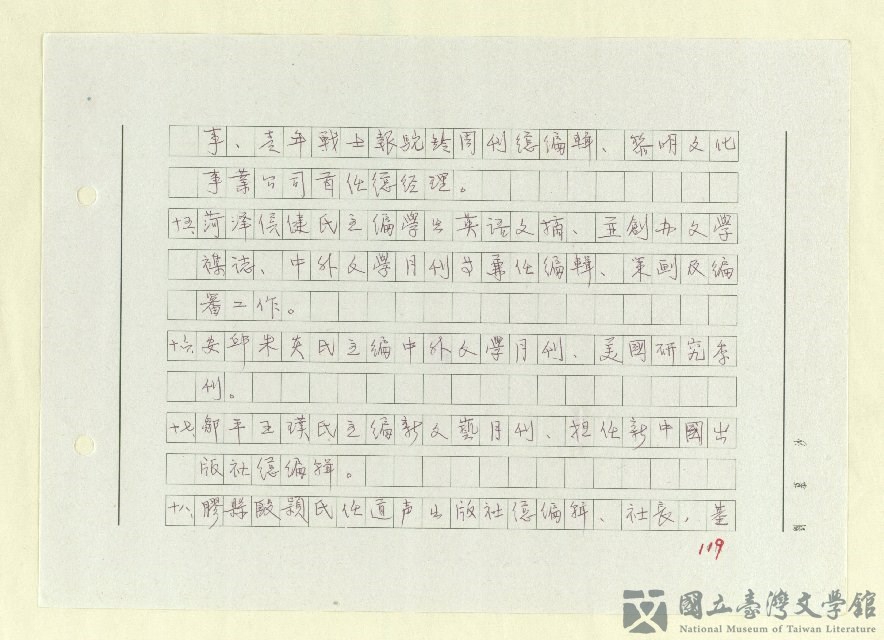 事、青年戰士報駝鈴周刊總編輯、黎明文化
事業公司首任總经理。
十五、菏泽侯健氏主編學生英语文摘、並創办文學
襍誌、中外文學月刊文兼任編輯、策画及編
審工作。
十六、安邱朱炎氏主編中外文學月刊、美國研究季
刊。
十七、鄒平王璞氏主編新文藝月刊、担任新中國出
版社總編辑。
十八、膠縣殷穎氏任道声出版社總編辑、社長，基
119
國立臺灣文學館
National Museum of Taiwan Literature